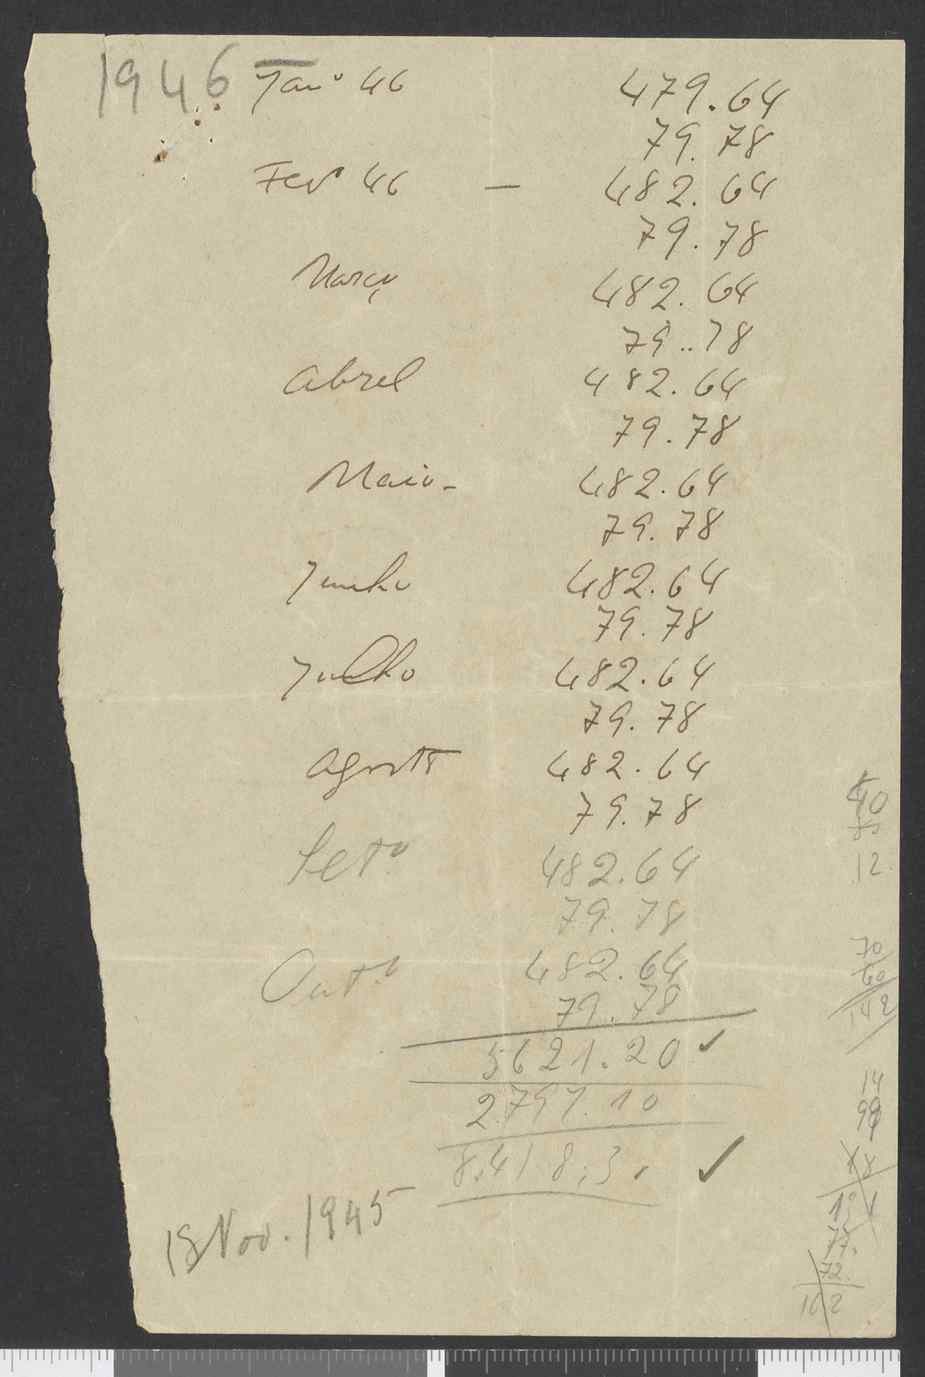 1946 Janº 46 479.64
79.78
Fevº 46 — 482.64
79.78
Março 482.64
79..78
Abril 482.64
79.78
Maio - 482.64
79.78
Junho 482.64
79.78
Julho 482.64
79.78
Agosto 482.64
79.78
Setº 482.64
79.78
Outº 482.64
79.78
5621.20 ✓
2.797.10
8.418.3. ✓
18 Nov. 1945
12
70
60
142
14
77.
72
162